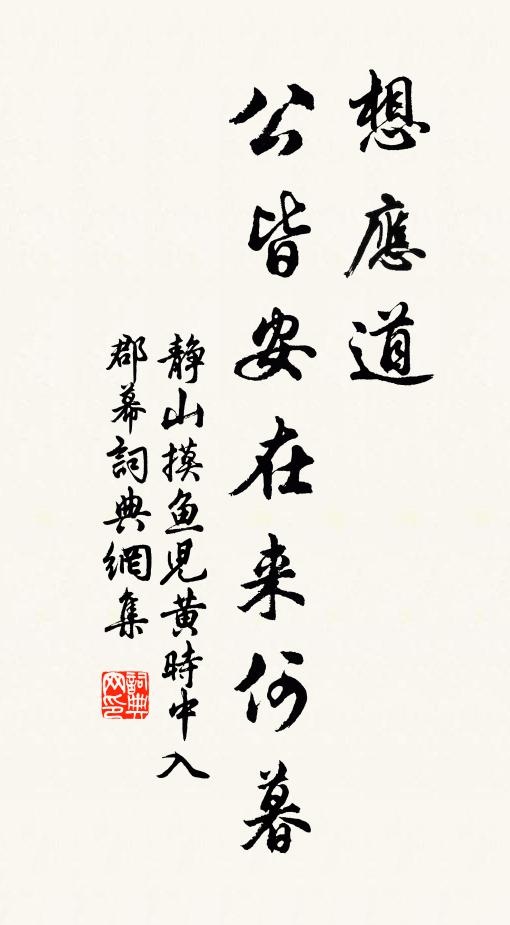 想應道
公皆安在来何暮
静山摸鱼児黄時中入
郡幕詞典網集
詞典
网印